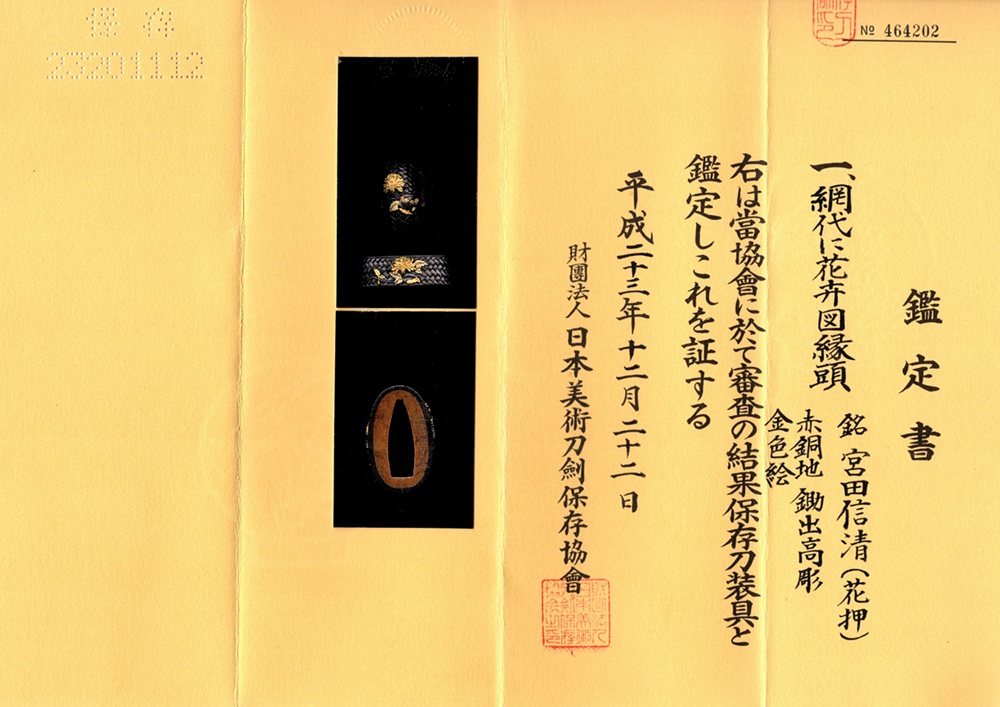 № 464202
鑑定書
一、網代に花卉図縁頭
銘 宮田信清(花押)
赤銅地 鋤出高彫
金色絵
右は當協會に於て審査の結果保存刀装具と
鑑定しこれを証する
平成二十三年十二月二十二日
財團法人 日本美術刀劍保存協會
保存
23201112